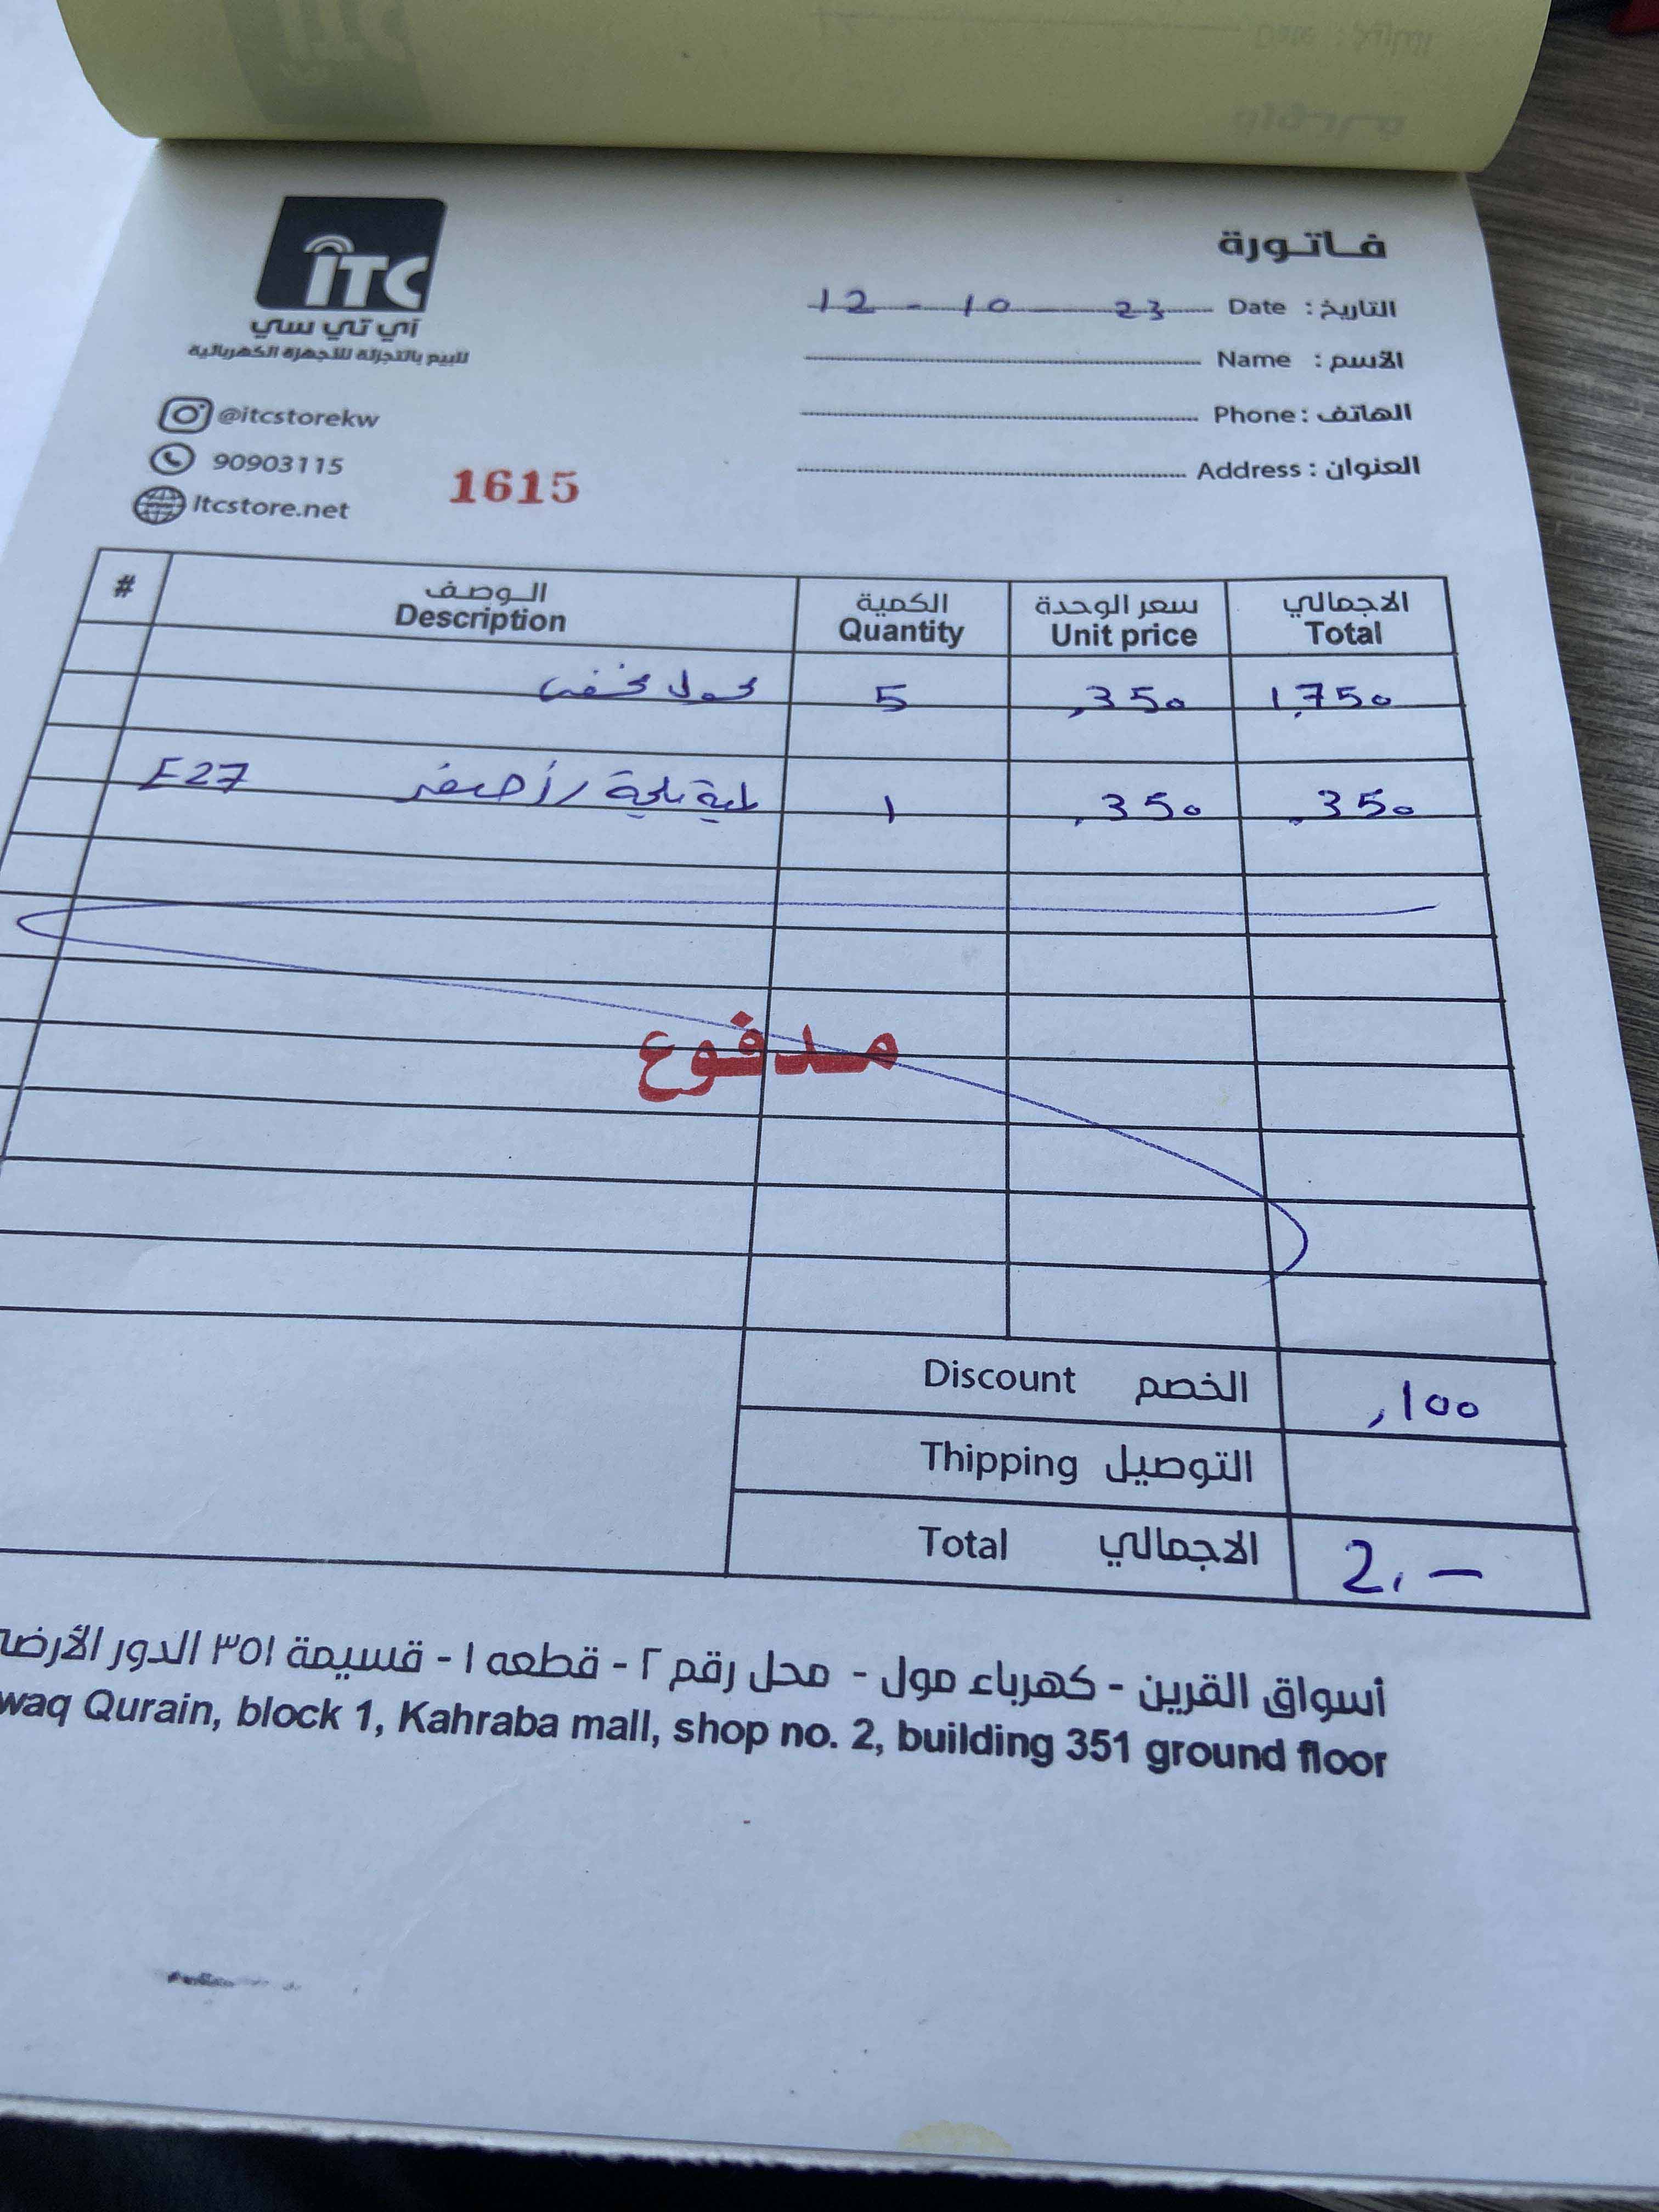 ITC
آي تي سي
للبيع بالتجزئة للأجهزة الكهربائية
@itcstorekw
90903115
Itcstore.net
1615
فاتورة
التاريخ : Date 12 - 10 - 23
الأسم : Name
الهاتف : Phone
العنوان : Address
# الوصف Description الكمية Quantity سعر الوحدة Unit price الاجمالي Total
محول مخفى 5 ,350 1,750
E27 أصفر 1 ,350 ,350
مدفوع
Discount الخصم ,100
Thipping التوصيل
Total الاجمالي 2,—
أسواق القرين - كهرباء مول - محل رقم ٢ - قطعه ١ - قسيمة ٣٥١ الدور الأرض
waq Qurain, block 1, Kahraba mall, shop no. 2, building 351 ground floor